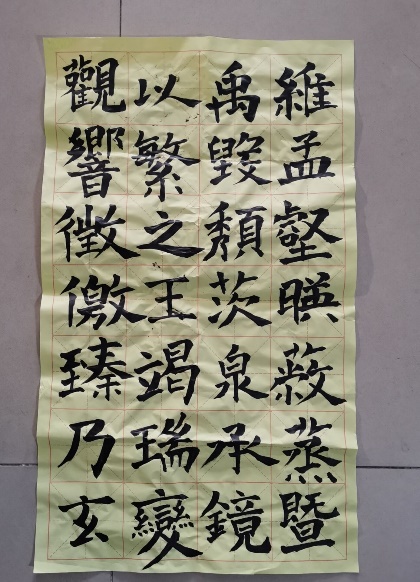 維孟壑暎蒸暨
禹毀頹茨泉承鏡
以繁之王竭瑞變
觀響徵儌臻乃玄